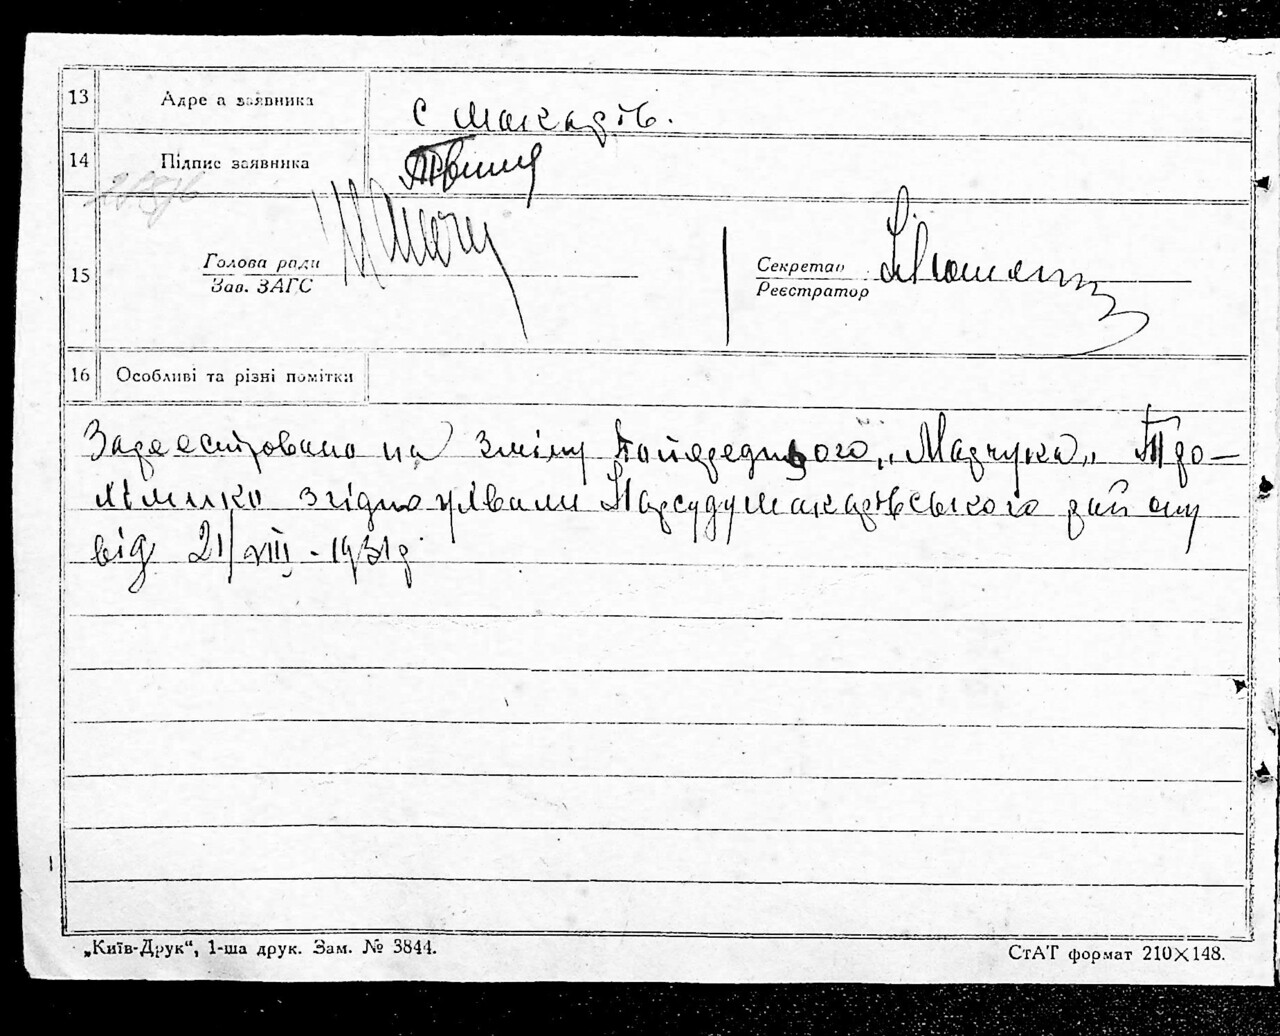 13 Адре а заявника с Макарів.
14 Підпис заявника
15 Голова ради
Зав. ЗАГС
Секретар
Реєстратор
16 Особливі та різні помітки
Зареєстровано на зміну попереднього „Марчука„ Тро-
хімика згідно ухвали Нарсуду Макарівського району
від 21/VIII - 1931 р.
„Київ-Друк“, 1-ша друк. Зам. № 3844.
СтАТ формат 210×148.